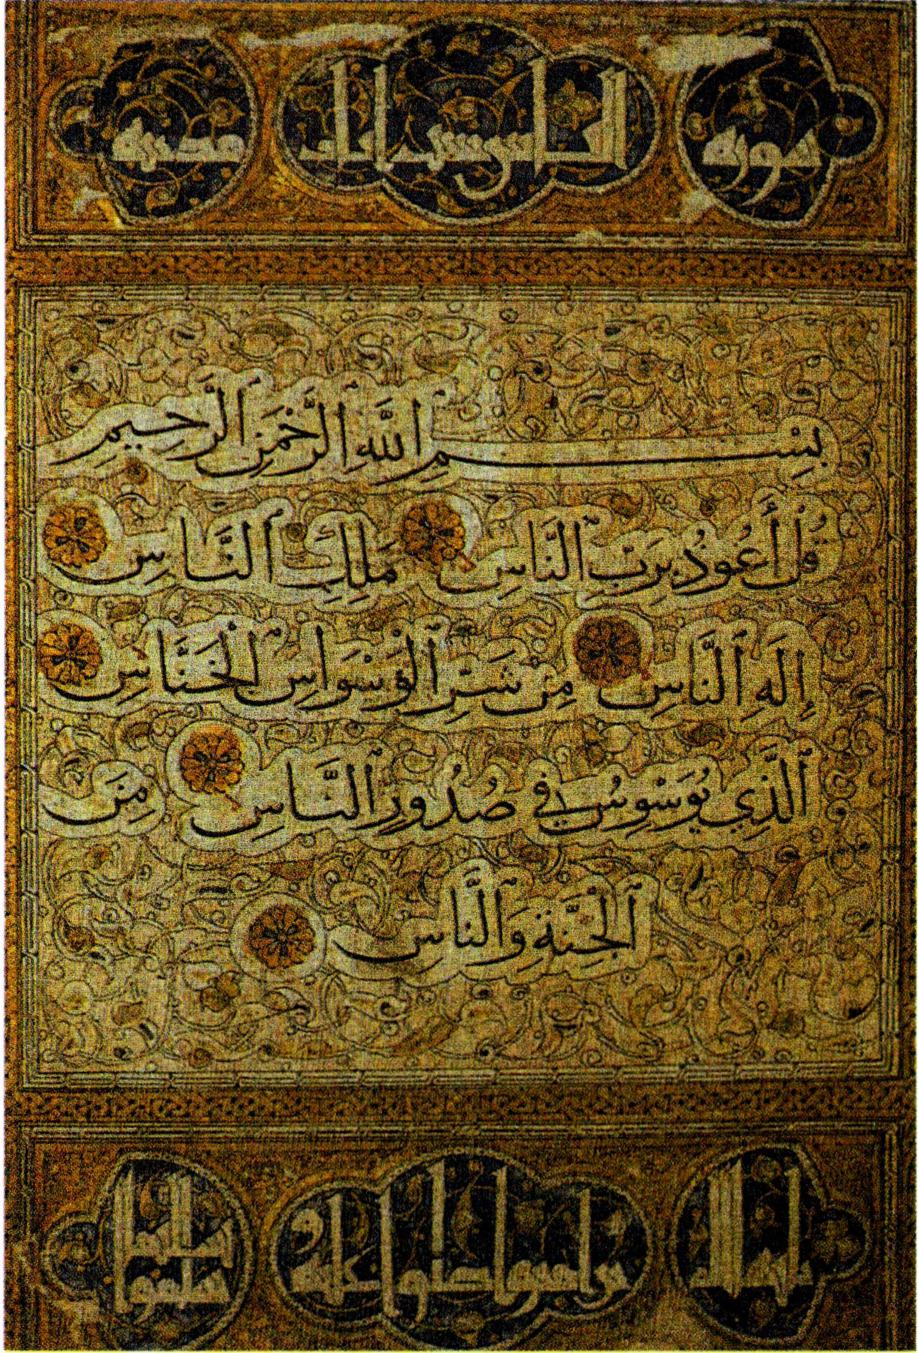 سورة الناس
بِسْمِ اللَّهِ الرَّحْمَنِ الرَّحِيمِ
قُلْ أَعُوذُ بِرَبِّ النَّاسِ مَلِكِ النَّاسِ
إِلَهِ النَّاسِ مِن شَرِّ الْوَسْوَاسِ الْخَنَّاسِ
الَّذِي يُوَسْوِسُ فِي صُدُورِ النَّاسِ مِنَ
الْجَنَّةِ وَالنَّاسِ